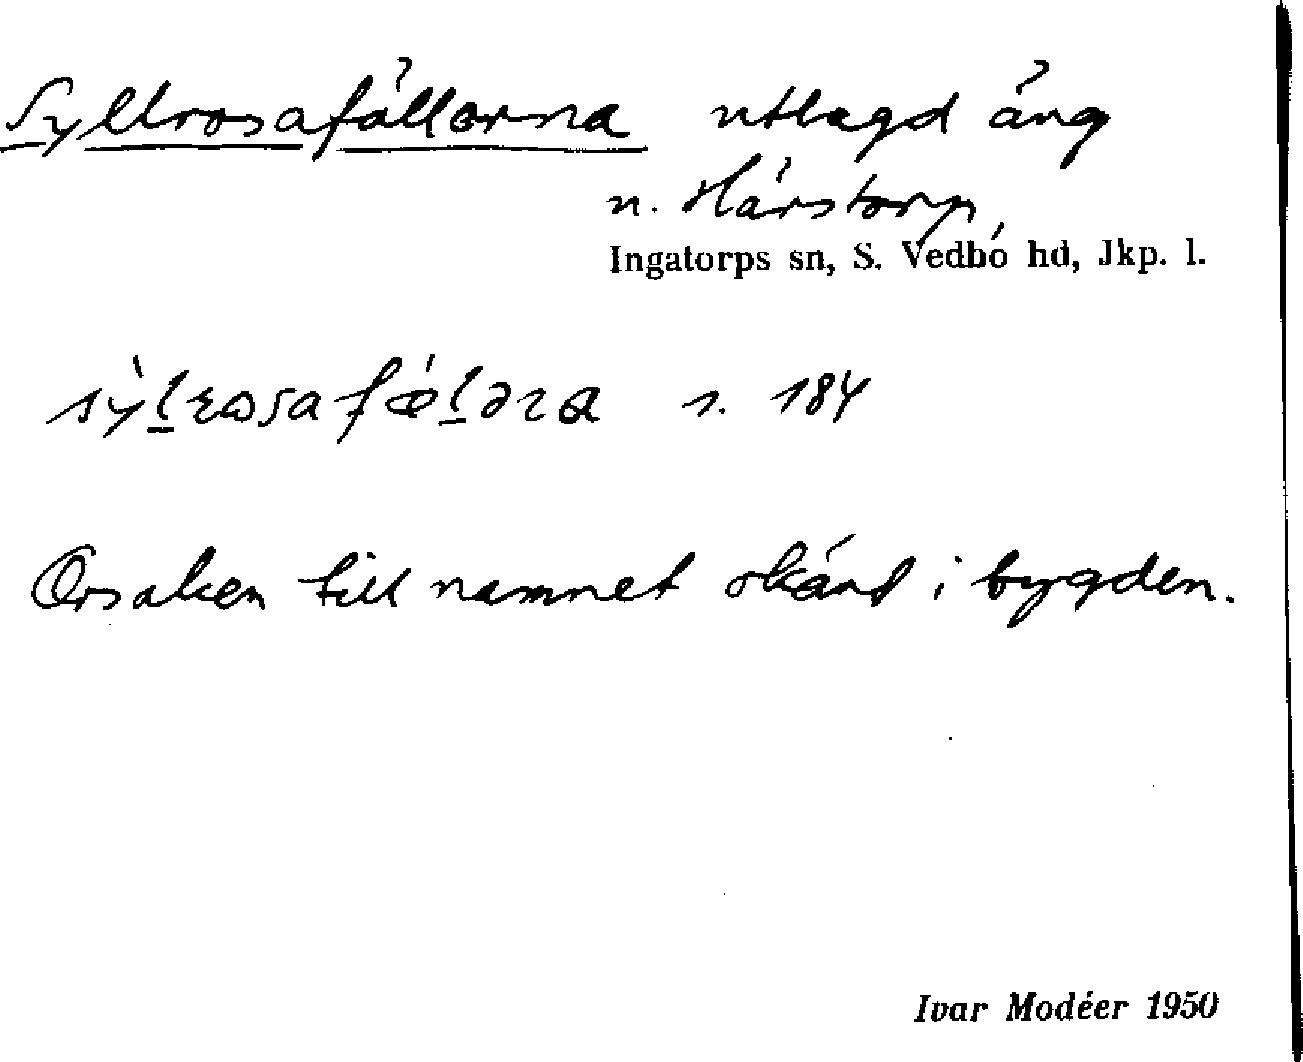 Syllrosafällorna utlagd äng
n. Hårstorp
Ingatorps sn, S. Vedbo hd, Jkp. l.
s. 184
Orsaken till namnet okänd i bygden.
Ivar Modéer 1950